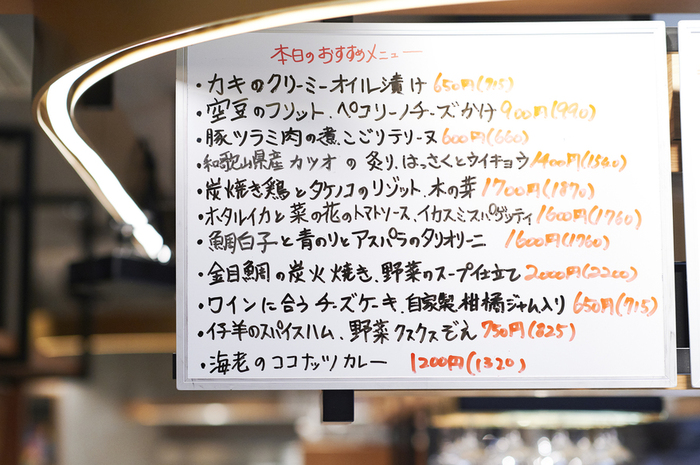 本日のおすすめメニュー
・カキのクリーミーオイル漬け 650円(715)
・空豆のフリット、ペコリーノチーズかけ 900円(990)
・豚ツラミ肉の煮こごりテリーヌ 600円(660)
・和歌山県産カツオの炙り、はっさくとウイキョウ 1400円(1540)
・炭焼き鶏とタケノコのリゾット、木の芽 1700円(1870)
・ホタルイカと菜の花のトマトソース、イカスミスパゲッティ 1600円(1760)
・鯛白子と青のりとアスパラのタリオリーニ 1600円(1760)
・金目鯛の炭火焼き、野菜のスープ仕立て 2000円(2200)
・ワインに合うチーズケーキ、自家製柑橘ジャム入り 650円(715)
・仔羊のスパイスハム、野菜クスクスぞえ 750円(825)
・海老のココナッツカレー 1200円(1320)